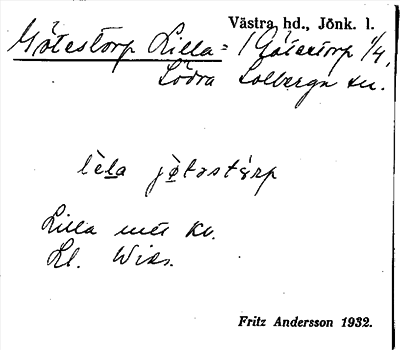 Västra hd., Jönk. l.
Götestorp Lilla = 1 Götestorp 1/4,
Södra Solberga sn.
lèla jø̀təstərp
Lilla utei kv.
Kl. Wiss.
Fritz Andersson 1932.